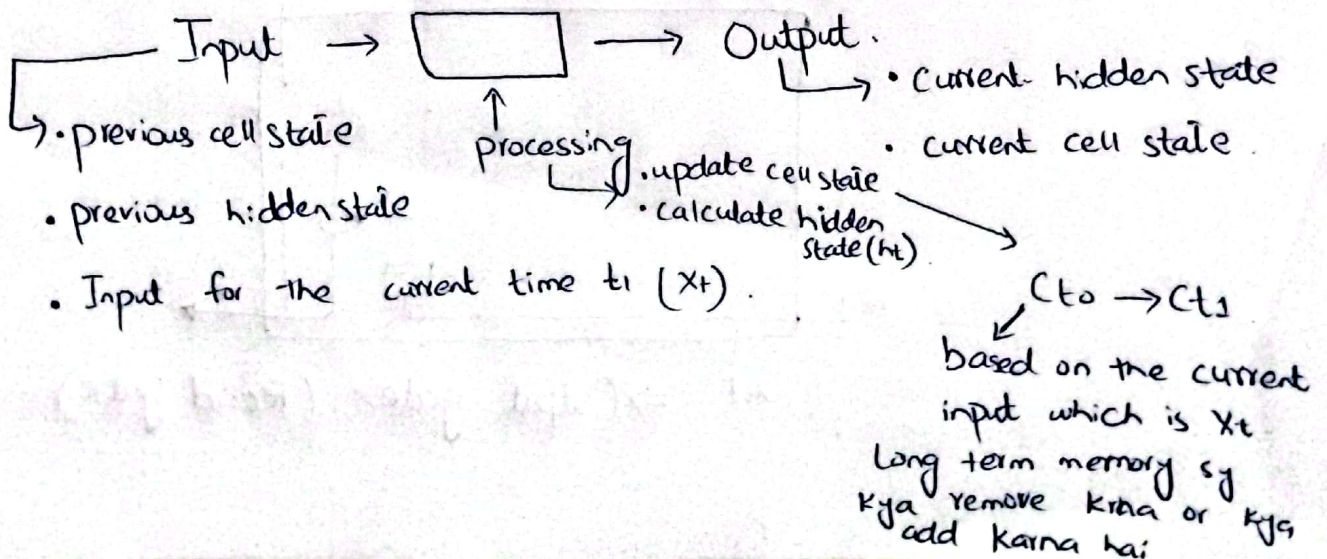 Input → → Output.
• previous cell state
• previous hidden state
• Input for the current time t1 (Xt).
processing
• update cell state
• calculate hidden
state (ht)
• current hidden state
• current cell state.
Ct0 → Ct1
based on the current
input which is Xt
Long term memory sy
kya remove krna or kya
add karna hai